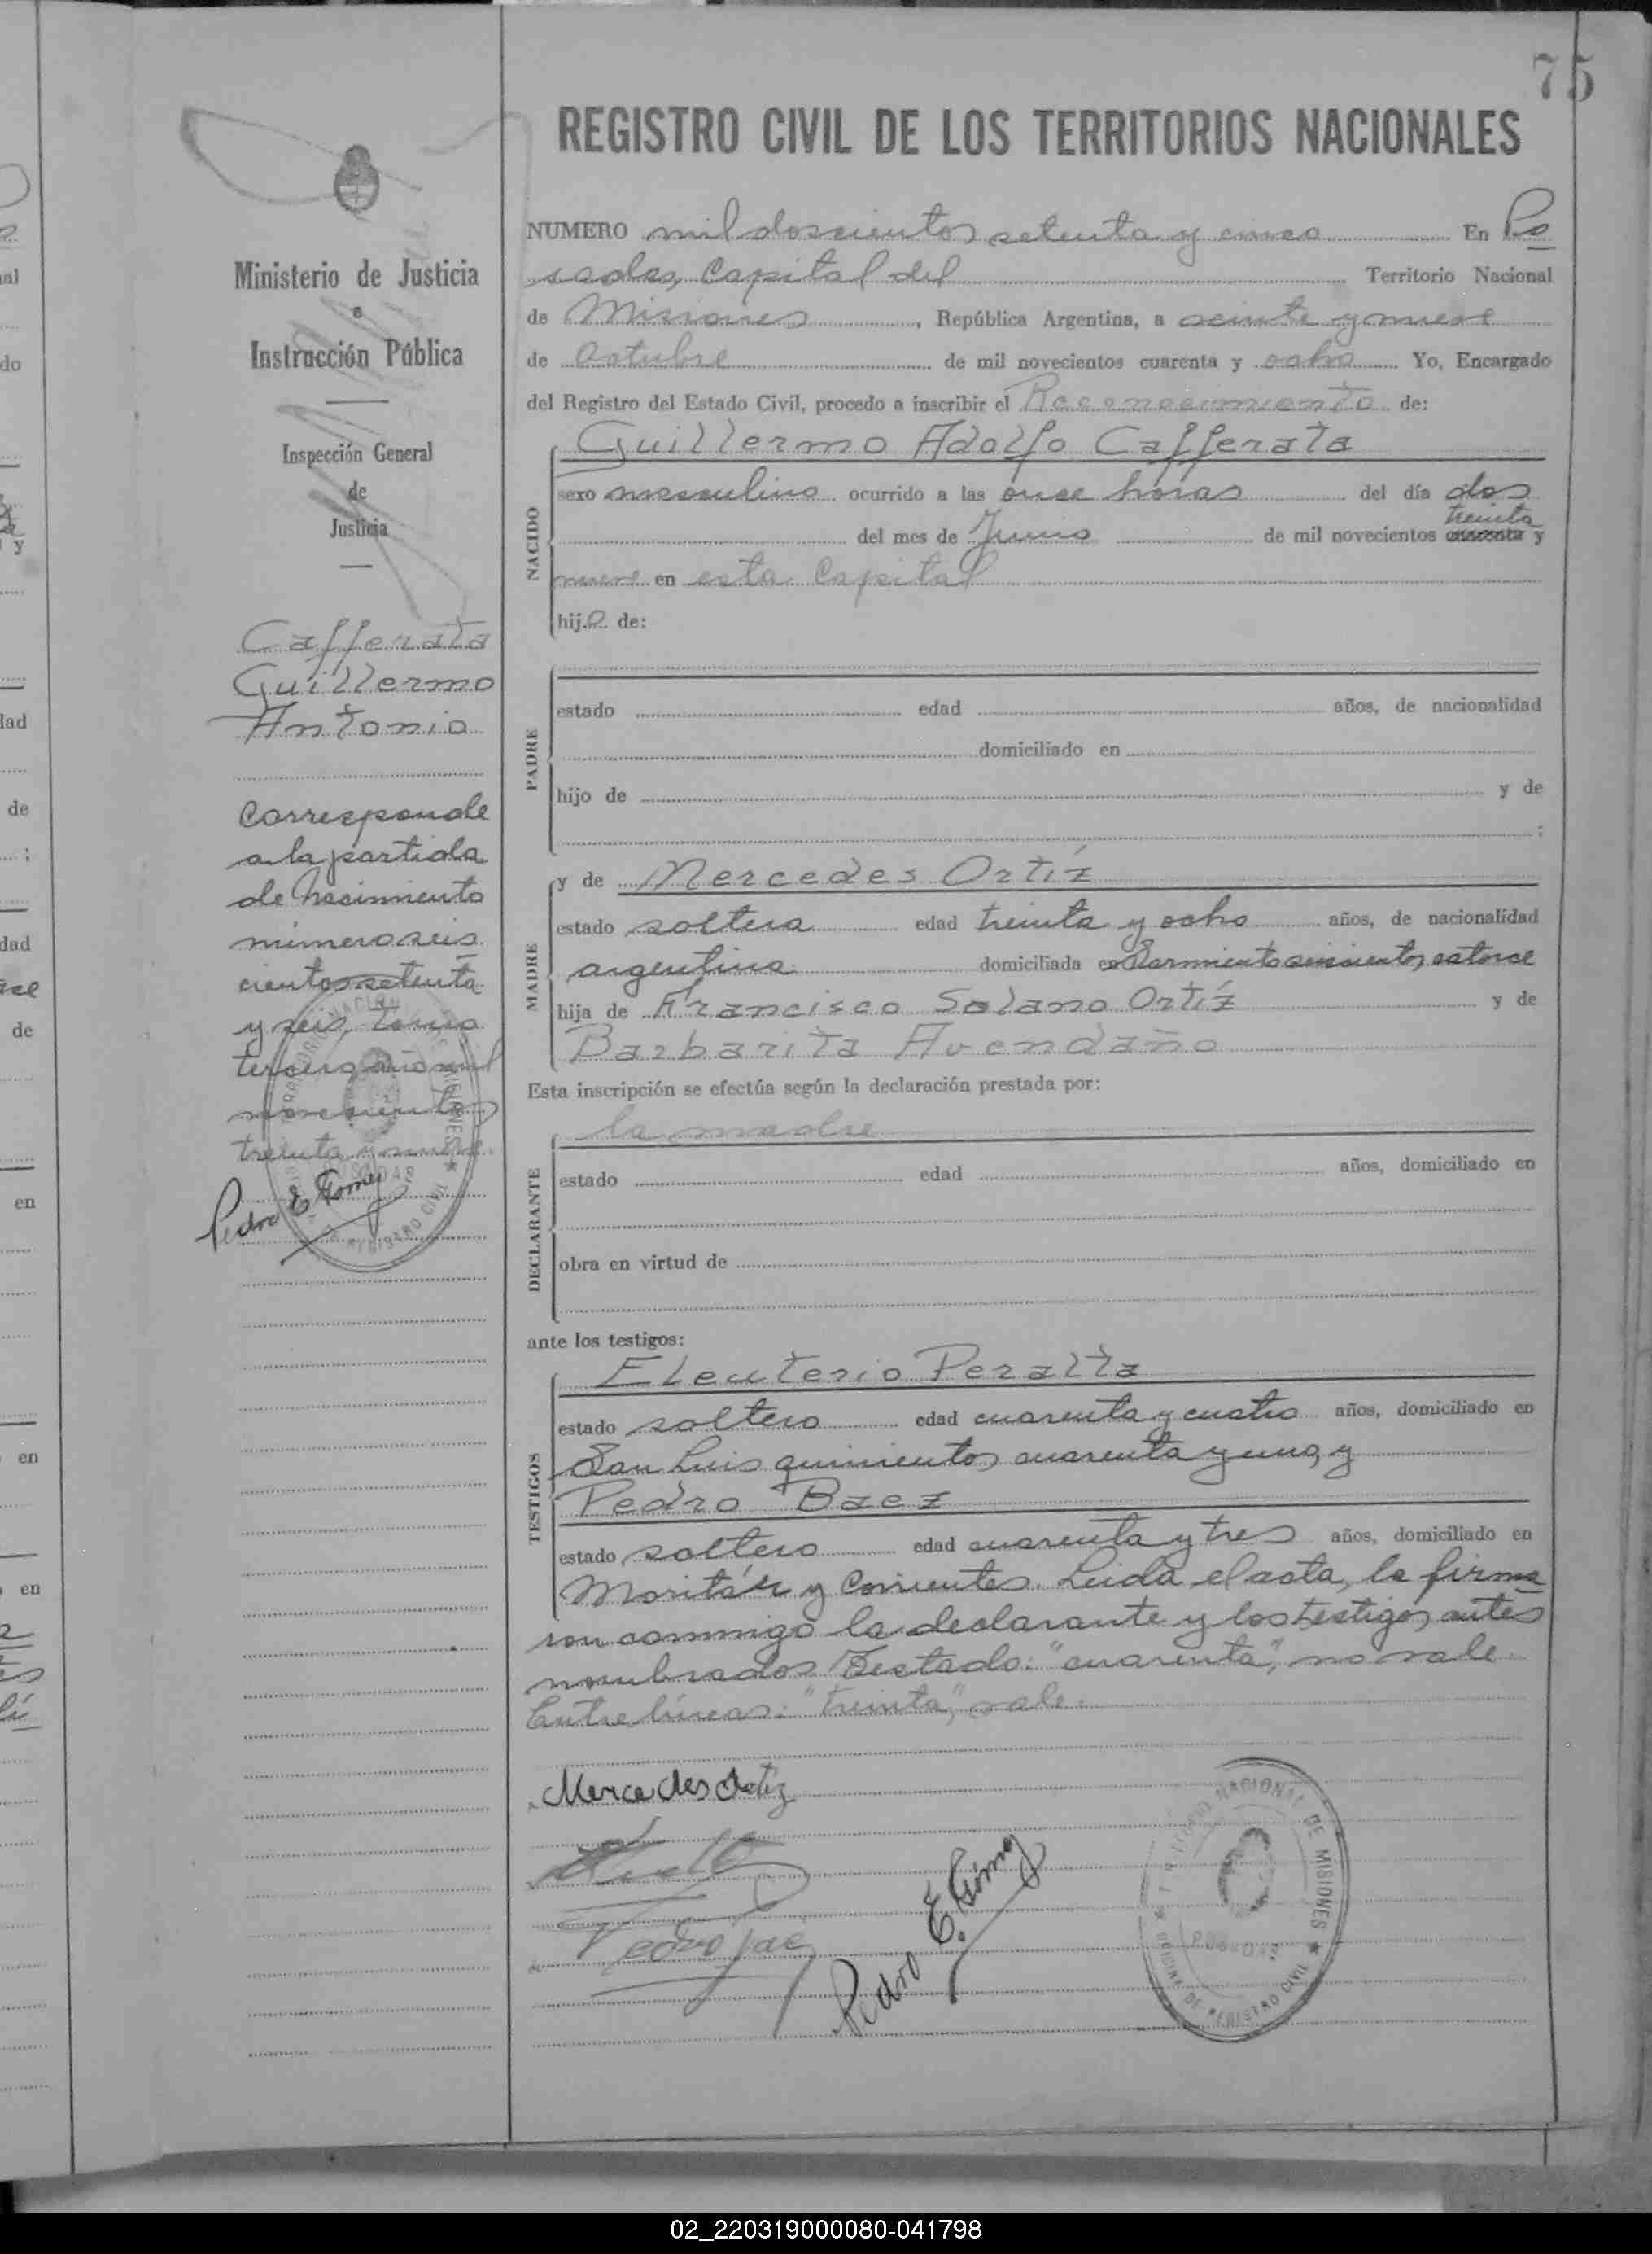 75
REGISTRO CIVIL DE LOS TERRITORIOS NACIONALES
Ministerio de Justicia
e
Instrucción Pública
Inspección General
de
Justicia
Cafferata
Guillermo
Antonio
Corresponde
a la partida
de Nacimiento
número seis
cientos setenta
y seis, tomo
tercero, año mil
novecientos
treinta y nueve.
Pedro E Gomez
NUMERO mil doscientos setenta y cinco En Po
sadas, Capital del Territorio Nacional
de Misiones, República Argentina, a veinte y nueve
de Octubre de mil novecientos cuarenta y ocho Yo, Encargado
del Registro del Estado Civil, procedo a inscribir el Reconocimiento de:
NACIDO
Guillermo Adolfo Cafferata
sexo masculino ocurrido a las once horas del día dos
treinta
del mes de Junio de mil novecientos cuarenta y
nueve en esta Capital
hijo de:
PADRE
estado edad años, de nacionalidad
domiciliado en
hijo de y de
;
MADRE
y de Mercedes Ortíz
estado soltera edad treinta y ocho años, de nacionalidad
argentina domiciliada en Sarmiento catorce
hija de Francisco Solano Ortíz y de
Barbarita Avendaño
Esta inscripción se efectúa según la declaración prestada por:
DECLARANTE
la madre
estado edad años, domiciliado en
obra en virtud de
ante los testigos:
TESTIGOS
Eleuterio Peralta
estado soltero edad cuarenta y cuatro años, domiciliado en
San Luis quinientos cuarenta y uno, y
Pedro Baez
estado soltero edad cuarenta y tres años, domiciliado en
y Corrientes. Leida el acta, la firma
ron conmigo la declarante y los testigos antes
nombrados Testado: "cuarenta", no vale.
Entre líneas: "treinta", vale.
Mercedes Ortiz
Pedro E. Gómez
TERRITORIO NACIONAL DE MISIONES
POSADAS
OFICINA DE REGISTRO CIVIL
02_220319000080-041798